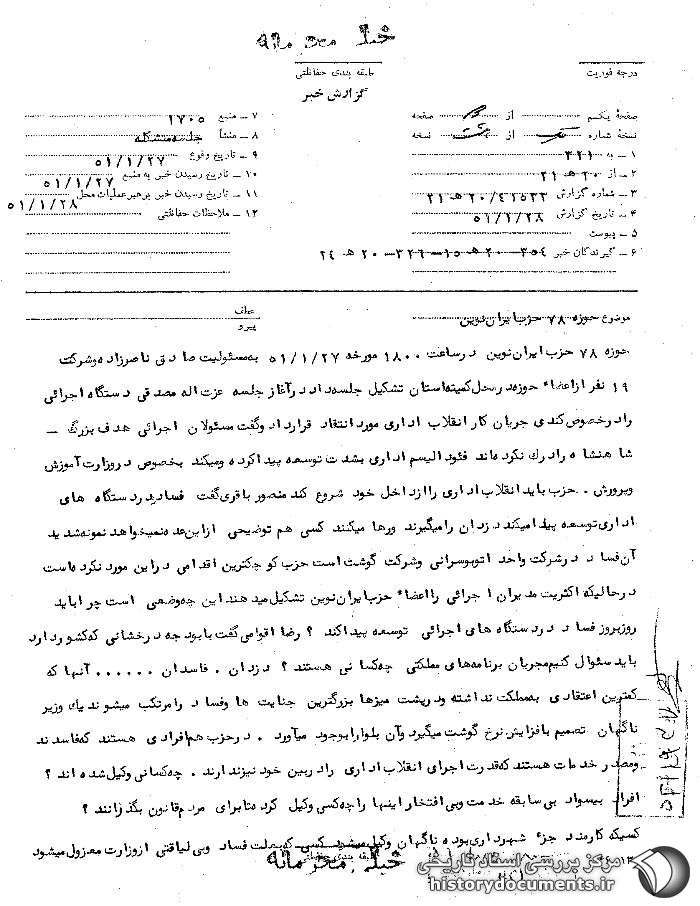 خیلی محرمانه
درجه فوریت
طبقه بندی حفاظتی
گزارش خبر
صفحهٔ یکم از صفحه
نسخهٔ شماره یک از هشت نسخه
۱ ـ به ۳۲۱
۲ ـ از ۲۰ هـ ۲۱
۳ ـ شماره گزارش ۲۰/۴۱۵۳۳ هـ ۲۱
۴ ـ تاریخ گزارش ۵۱/۱/۲۸
۵ ـ پیوست
۶ ـ گیرندگان خبر ۳۵۴ـ ۲۰ هـ ۱۵ـ ۳۲۶ـ ۲۰ هـ ۲۴
۷ ـ منبع ۱۷۰۵
۸ ـ منشأ جلسه متشکله
۹ ـ تاریخ وقوع ۵۱/۱/۲۷
۱۰ ـ تاریخ رسیدن خبر به منبع ۵۱/۱/۲۷
۱۱ ـ تاریخ رسیدن خبر برهبر عملیات محل ۵۱/۱/۲۸
۱۲ ـ ملاحظات حفاظتی
موضوع حوزه ۷۸ حزب ایران نوین
عطف
پیرو
حوزه ۷۸ حزب ایران نوین در ساعت ۱۸۰۰ مورخه ۵۱/۱/۲۷ به مسئولیت صادق ناصرزاده و شرکت
۱۹ نفر از اعضاء حوزه در محل کمیته استان تشکیل جلسه داد در آغاز جلسه عزت اله مصدقی دستگاه اجرائی
را در خصوص کندی جریان کار انقلاب اداری مورد انتقاد قرار داد و گفت مسئولان اجرائی هدف بزرگ ـ
شاهنشاه را درک نکرده اند فئودالیسم اداری بشدت توسعه پیدا کرده و میکند بخصوص در وزارت آموزش
و پرورش . حزب باید انقلاب اداری را از داخل خود شروع کند منصور باقری گفت فساد در دستگاه های
اداری توسعه پیدا میکند دزدان را میگیرند و رها میکنند کسی هم توضیحی از این عده نمیخواهد نمونه شدید
آن فساد در شرکت واحد اتوبوسرانی و شرکت گوشت است حزب کوچکترین اقدامی در این مورد نکرده است
در حالیکه اکثریت مدیران اجرائی را اعضاء حزب ایران نوین تشکیل میدهند این چه وضعی است چرا باید
روز بروز فساد در دستگاه های اجرائی توسعه پیدا کند ؟ رضا اقوامی گفت با بودجه درخشانی که کشور دارد
باید سئوال کنیم مجریان برنامه های مملکتی چه کسانی هستند ؟ دزدان . فاسدان ...... آنها که
کمترین اعتقادی به مملکت نداشته و در پشت میزها بزرگترین جنایت ها و فساد را مرتکب میشوند یک وزیر
ناگهان تصمیم با فزایش نرخ گوشت میگیرد و آن بلوا را بوجود میآورد . در حزب هم افرادی هستند که فاسدند
و مصدر خدمات هستند که قدرت اجرای انقلاب اداری را در بین خود نیز ندارند . چه کسانی وکیل شده اند ؟
افراد بیسواد بی سابقه خدمت و بی افتخار اینها را چه کسی وکیل کرده تا برای مردم قانون بگذرانند ؟
کسیکه کارمند جزء شهرداری بوده ناگهان وکیل میشود کسی که بعلت فساد و بی لیاقتی از وزارت معزول میشود
طبقه بندی حفاظتی
خیلی محرمانه
مرکز بررسی اسناد تاریخی
historydocuments.ir